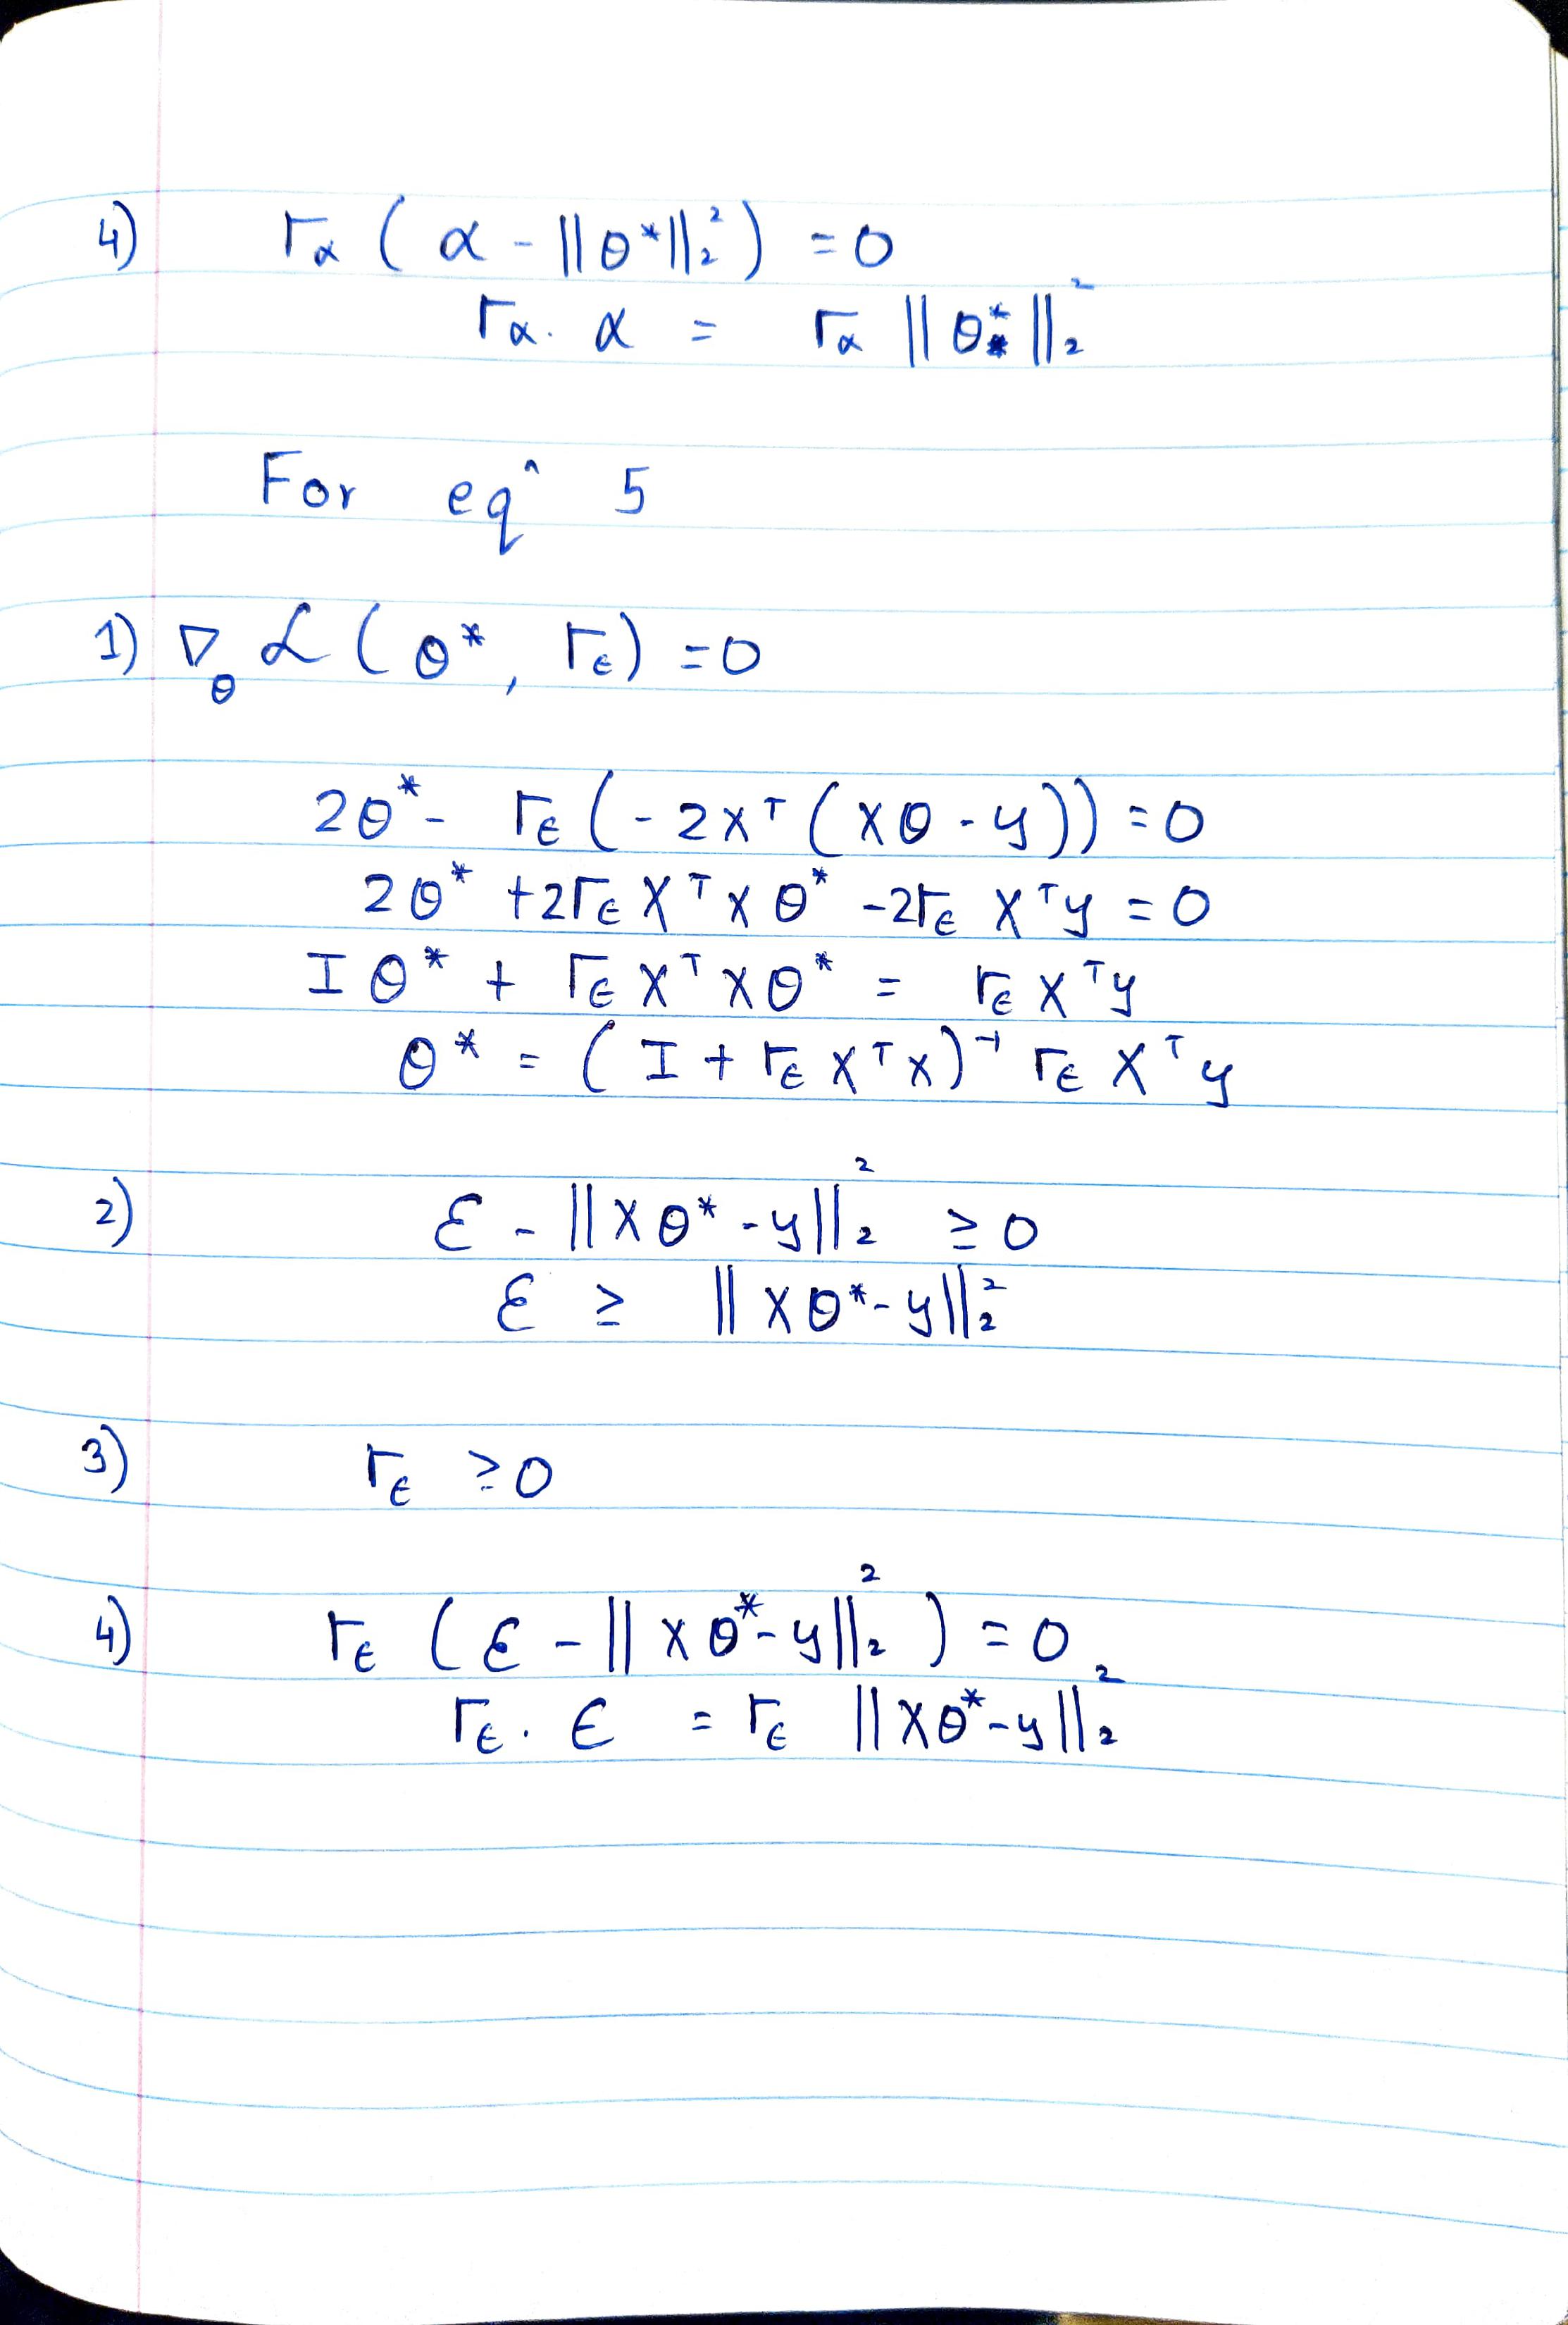 4) Γα ( α - ||θ*||₂² ) = 0
Γα . α = Γα ||θ*||₂²
For eqⁿ 5
1) ∇_θ ℒ ( θ* , Γϵ) = 0
2θ* - Γϵ ( - 2Xᵀ ( Xθ - y)) = 0
2θ* + 2Γϵ Xᵀ X θ* - 2Γϵ Xᵀy = 0
I θ* + Γϵ Xᵀ X θ* = Γϵ Xᵀy
θ* = ( I + Γϵ Xᵀ X)⁻¹ Γϵ Xᵀ y
2) ε - ||Xθ* - y||₂² ≥ 0
ε ≥ ||Xθ* - y||₂²
3) Γϵ ≥ 0
4) Γϵ ( ε - || Xθ* - y||₂² ) = 0
Γϵ . ϵ = Γϵ ||Xθ* - y||₂²